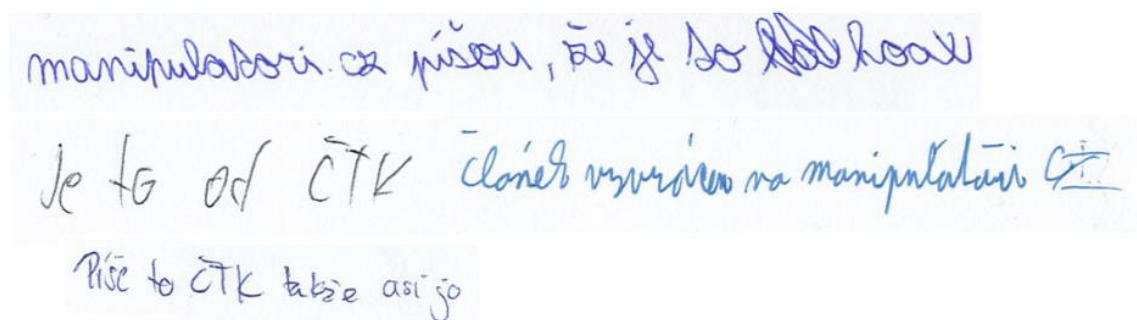 manipulatori.cz píšou, že je to hoax
Je to od ČTK
článek vyvrácen na manipulátoři
Píše to ČTK takže asi jo